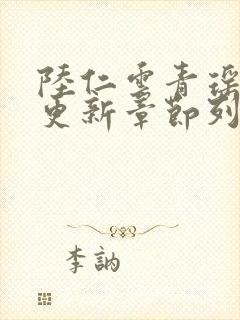 陸仁雲青瑤
更新章節列
李訥